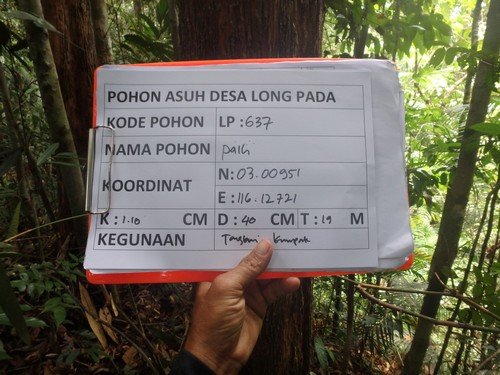 POHON ASUH DESA LONG PADA
KODE POHON LP : 637
NAMA POHON
KOORDINAT N: 03.00951
E : 116.12721
K : 1.10 CM D : 40 CM T : 19 M
KEGUNAAN